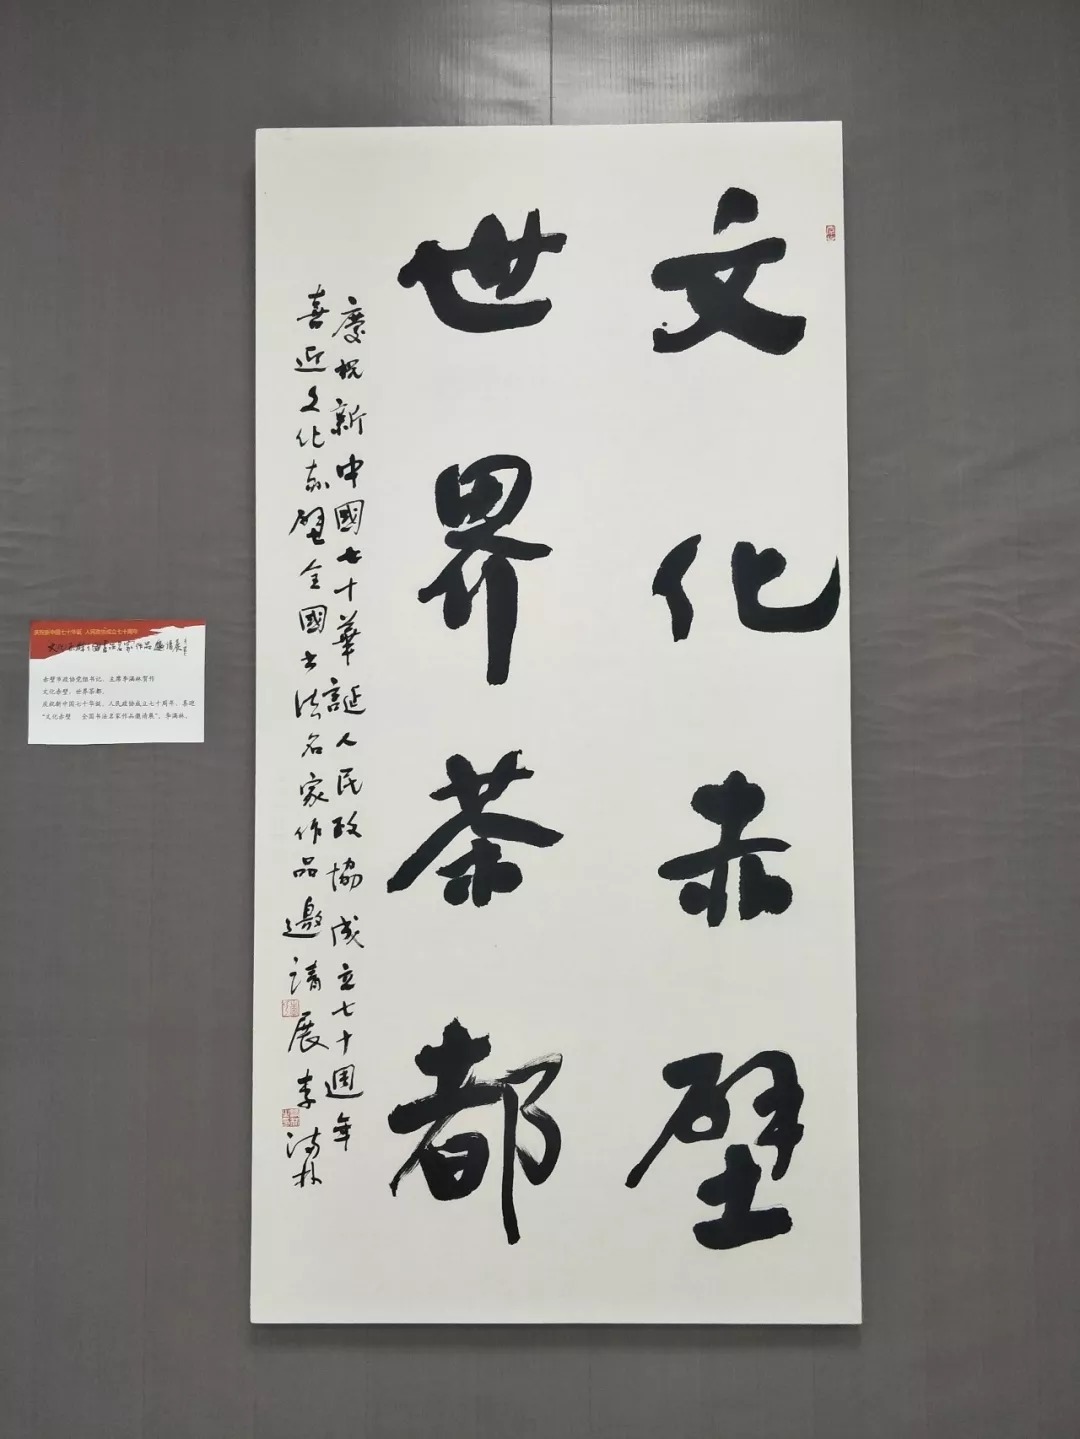 文化赤壁
世界茶都
慶祝新中國七十華誕人民政協成立七十週年
喜迎文化赤壁全國書法名家作品邀請展李满林
庆祝新中国七十华诞 人民政协成立七十周年
文化赤壁全国書法名家作品邀请展
赤壁市政协党组书记、主席李满林贺作
文化赤壁，世界茶都。
庆祝新中国七十华诞，人民政协成立七十周年，喜迎
“文化赤壁 全国书法名家作品邀请展”，李满林。